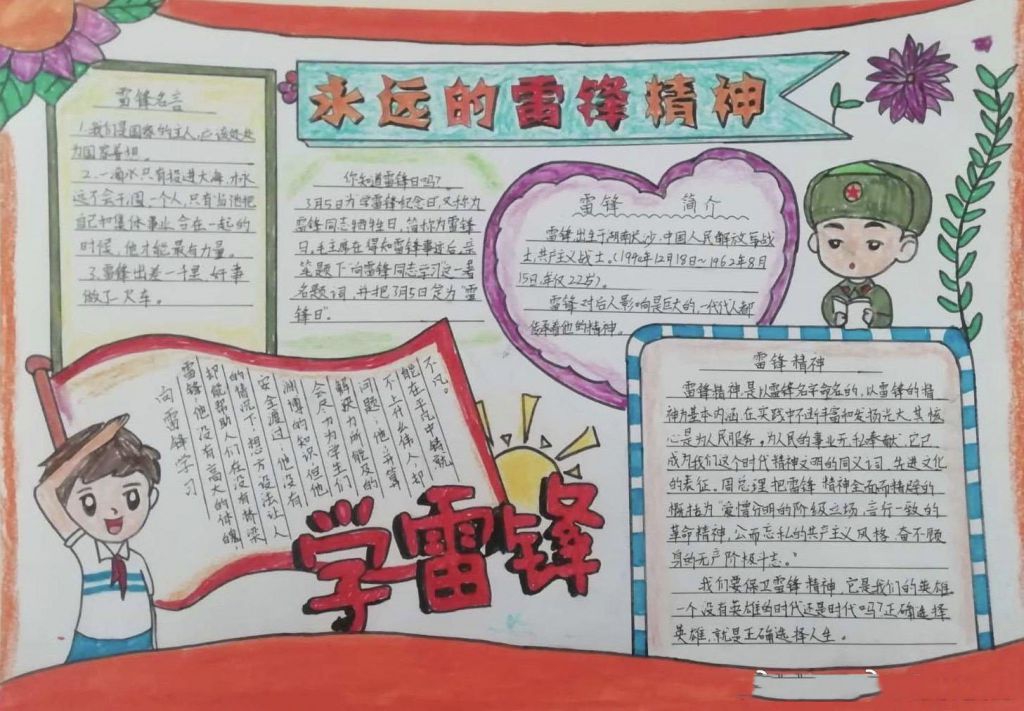 永远的雷锋精神
雷锋名言
1.我们是国家的主人,应该处处
为国家着想。
2.一滴水只有投进大海,才永
远不会干涸,一个人,只有当他把
自己和集体事业合在一起的
时候,他才能最有力量。
3.雷锋出差一千里,好事
做了一火车。
你知道雷锋日吗?
3月5日为学雷锋纪念日,又称为
雷锋同志牺牲日,简称为雷锋
日,毛主席在得知雷锋事迹后,亲
笔题下"向雷锋同志学习"这一著
名题词,并把3月5日定为"雷
锋日"。
雷锋 简介
雷锋出生于湖南长沙,中国人民解放军战
士,共产主义战士。(1940年12月18日~1962年8月
15日,年仅22岁)
雷锋对后人影响是巨大的,一代代人都
传承着他的精神。
向雷锋学习
雷锋,他没有高大的体魄,
却能帮助人们在没有桥梁
的情况下,想方设法让人
安全渡过,他没有
渊博的知识,但他
会尽力为学生们
解决力所能及的
问题;他,并算
不上什么伟人,却
能在平凡中铸就
不凡。
学雷锋
雷锋精神
雷锋精神,是以雷锋名字命名的,以雷锋的精
神为基本内涵,在实践中不断丰富和发扬光大,其核
心是为人民服务,为人民的事业无私奉献,它已
成为我们这个时代精神文明的同义词、先进文化
的表征。周总理把雷锋精神全面而精辟的
概括为"爱憎分明的阶级立场,言行一致的
革命精神,公而忘私的共产主义风格,奋不顾
身的无产阶级斗志。"
我们要保卫雷锋精神,它是我们的英雄
一个没有英雄的时代还是时代吗?正确选择
英雄,就是正确选择人生。